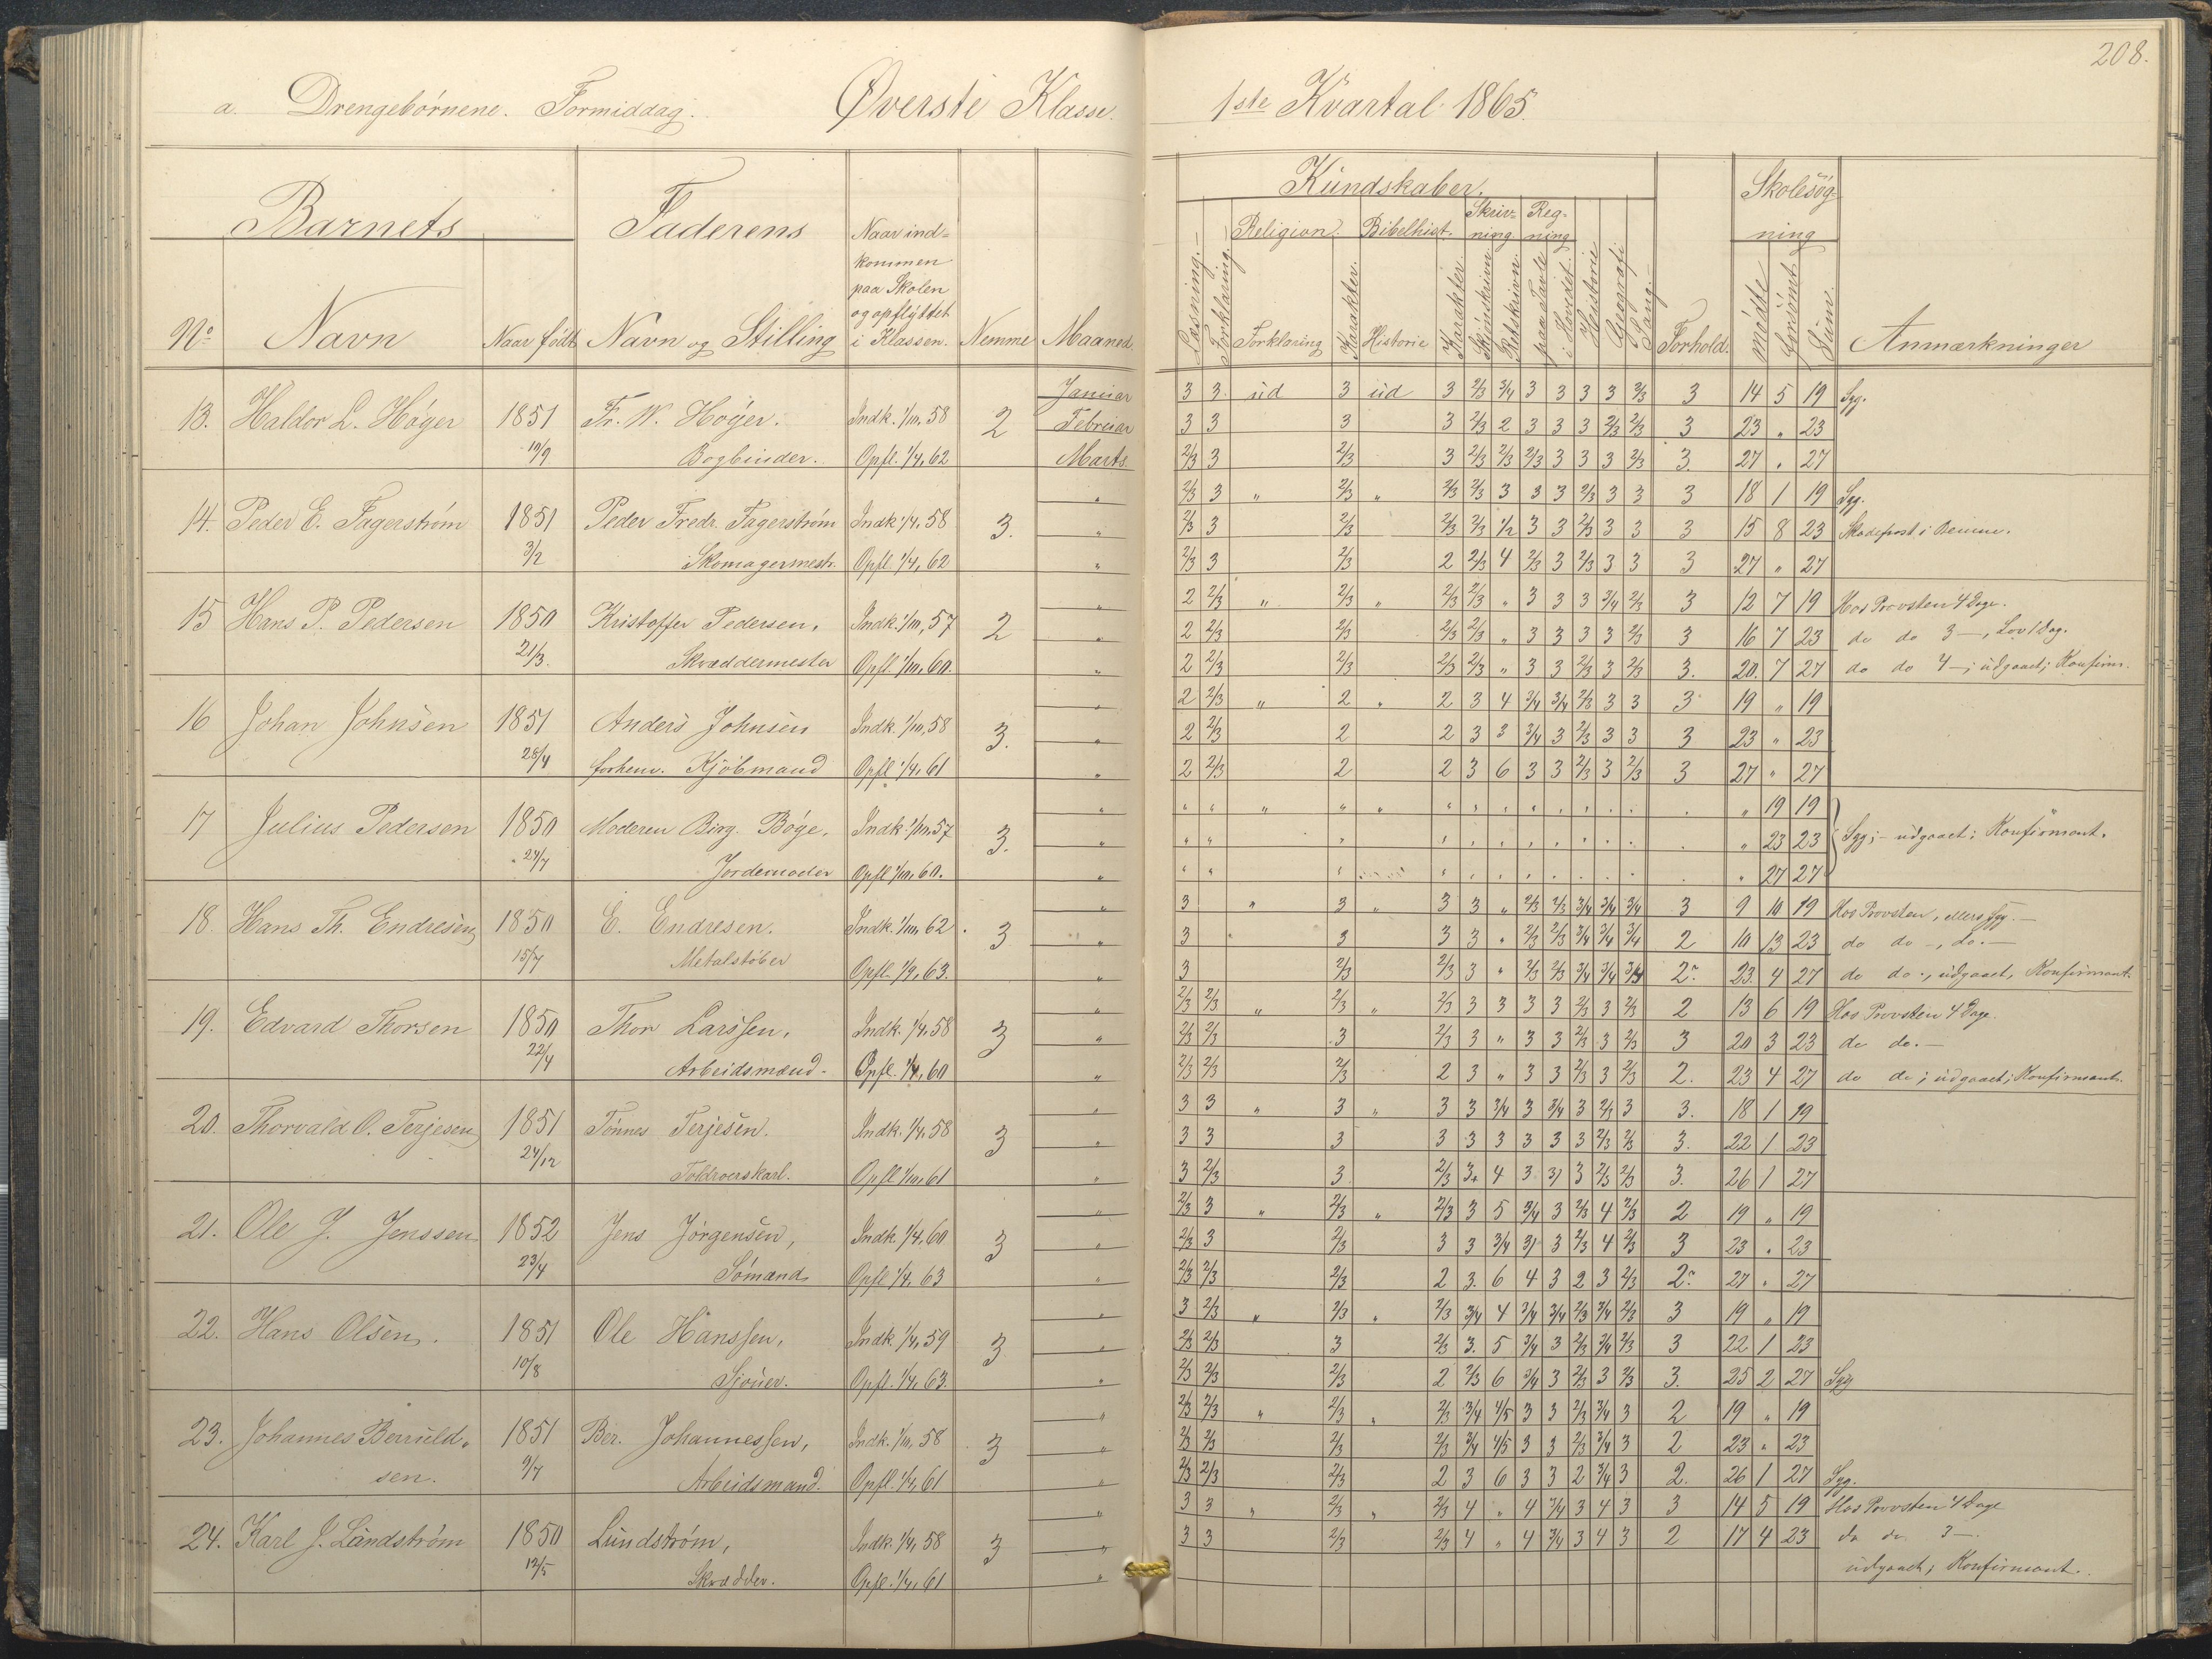 208.
a. Drengebørnene. Formiddag. Øverste Klasse. 1ste Kvartal 1865.
Barnets Faderens Naar ind-
kommen
paa Skolen
og opflyttet
i Klassen.
No Navn Naar født Navn og Stilling Nemme Maaned
Kundskaber. Skolesøg-
ning
Religion. Bibelhist. Skriv-
ning Reg-
ning
Læsning. Forklaring. Forklaring Karakter. Historie Karakter. Skjönskrivn. Retskrivn. paa Tavle i Hovedet. Historie Geografi Sang. Forhold. mødte forsömt Sum. Anmærkninger
13. Haldor L. Höyer 1851 Fr. W. Höyer. Indk. 1/10, 58 2 Januar
Februar
10/9 Bogbinder. Opfl. 1/4, 62 Marts
3 3 ud 3 ud 3 2/3 3/4 3 3 3 3 2/3 3 14 5 19 Syg.
3 3 3 3 2/3 2 3 3 3 2/3 2/3 3 23 " 23
2/3 3 2/3 3 2/3 2/3 2/3 3 3 3 2/3 3. 27 " 27
14. Peder E. Fagerström 1851 Peder Fredr. Fagerström Indk 1/4, 58 3.
3/2 Skomagermestr. Opfl. 1/4, 62
2/3 3 " 2/3 " 2/3 2/3 3 3 3 2/3 3 3 3 18 1 19 Syg.
2/3 3 2/3 2/3 2/3 1/2 3 3 2/3 3 3 3 15 8 23 i
2/3 3 2/3 2 2/3 4 2/3 3 2/3 3 3 3 27 " 27
15 Hans P. Pedersen 1850 Kristoffer Pedersen, Indk. 1/10, 57 2
21/3. Skræddermester Opfl. 1/10, 60.
2 2/3 " 2/3 " 2/3 2/3 " 3 3 3 3/4 2/3 3 12 7 19 Hos Provsten 4 Dage.
2 2/3 2/3 2/3 2/3 " 3 3 3 3 2/3 3 16 7 23 do do 3 —, Lov 1 Dag.
2 2/3 2/3 2/3 2/3 " 3 3 2/3 3 2/3 3. 20. 7 27 do do 4 —; udgaaet; Konfirm.
16 Johan Johnsen 1851 Anders Johnsen Indk. 1/10, 58 3.
28/4 forhenv. Kjöbmand Opfl. 1/4, 61
2 2/3 " 2 " 2 3 4 3/4 3/4 2/3 3 3 3 19 " 19
2 2/3 2 2 3 3 3/4 3 2/3 3 3 3 23 " 23
2 2/3 2 2 3 6 3 3 2/3 3 2/3 3 27 " 27
17 Julius Pedersen 1850 Moderen Birg. Böye, Indk. 1/10, 57 3.
24/7 Jordemoder Opfl. 1/10, 60.
" 19 19
" 23 23 Syg; - udgaaet; Konfirmant.
" 27 27
18. Hans Th. Endresen 1850 E. Endresen. Indk. 1/10, 62 3
15/7 Metalstøber Opfl. 1/9, 63.
3 " 3 " 3 3 " 2/3 2/3 3/4 3/4 3/4 3 9 10 19 Hos Provsten, ellers Syg. —
3 3 3 3 " 2/3 2/3 3/4 3/4 3/4 2 10 13 23 do do —, do. —
3 2/3 2/3 3 " 2/3 2/3 3/4 3/4 3/4 2. 23. 4 27 do do., udgaaet, Konfirmant.
19. Edvard Thorsen 1850 Thor Larssen, Indk. 1/4, 58 3
22/4 Arbeidsmand. Opfl. 1/4, 60
2/3 2/3 " 2/3 " 2/3 3 3 3 3 2/3 3 2/3 2 13 6 19 Hos Provsten 4 Dage.
2/3 2/3 3 2/3 3 " 3 3 2/3 3 2/3 3 20 3 23 do do. —
2/3 2/3 2/3 2 3 " 3 3 2/3 3 2/3 2. 23 4 27 do do; udgaaet; Konfirmant.
20. Thorvald O. Terjesen 1851 Tönnes Terjesen. Indk. 1/4, 58 3
24/12 Toldroerskarl. Opfl. 1/10, 61
3 3 " 3 " 3 3 3/4 3 3/4 3 2/3 3 3. 18 1 19
3 3 3 3 3 3 3 3 3 2/3 2/3 3. 22 1 23
3 2/3 3 2/3 3+ 4 3 3 3 2/3 2/3 3. 26 1 27
21. Ole J. Jenssen 1852 Jens Jörgensen, Indk. 1/4, 60 3
23/4 Sömand Opfl. 1/4, 63
2/3 3 " 2/3 " 2/3 3 5 3/4 3 2/3 4 2/3 2 19 " 19
2/3 3 2/3 3 3 3/4 3 3 2/3 4 2/3 3 23 " 23
2/3 2/3 2/3 2 3. 6 4 3 2 3 2/3 2. 27 " 27
22. Hans Olsen. 1851 Ole Hanssen, Indk. 1/4, 59 3
10/8 Sjouer. Opfl. 1/4, 63.
3 2/3 " 2/3 " 2/3 3/4 4 3/4 3/4 2/3 3/4 2/3 3 19 " 19
2/3 2/3 3 2/3 3. 5 3/4 3 2/3 3/4 2/3 3 22 1 23
2/3 2/3 2/3 2 2/3 6 3/4 3 2/3 3 2/3 3. 25 2 27 Syg
23. Johannes Berruld- 1851 Ber. Johannessen, Indk. 1/10, 58 3
sen. 9/7 Arbeidsmand. Opfl. 1/4, 61
2/3 2/3 " 2/3 " 2/3 3/4 4/5 3 3 2/3 3/4 3 2 19 " 19
2/3 2/3 2/3 2/3 3/4 4/5 3 3 2/3 3/4 3 2 23 " 23
2/3 2/3 2/3 2 3 6 3 3 2 3/4 3 2. 26 1 27 Syg.
24. Karl J. Lundström 1850 Lundström, Indk. 1/4, 58 3
12/5 Skrædder. Opfl. 1/4, 61
3 3 " 2/3 " 2/3 4 " 4 3/4 3 4 3 3 14 5 19 Hos Provsten 4 Dage
3 3 2/3 2/3 4 " 4 3/4 3 4 3 2 17 4 23 do do 3 —.
udgaaet; Konfirmant.